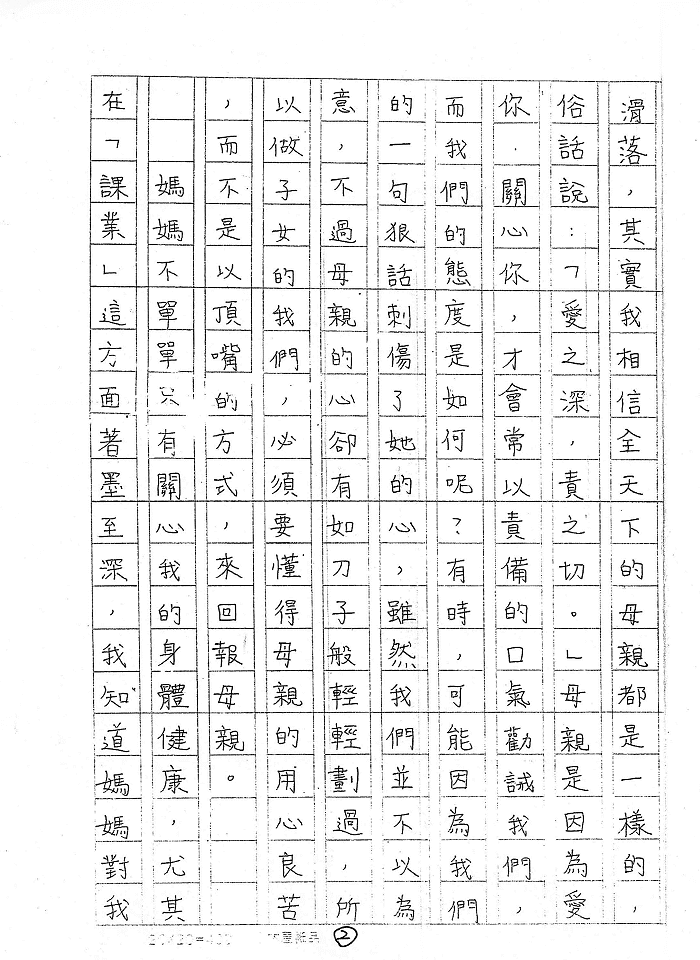 滑落，其實我相信全天下的母親都是一樣的，
俗話說：「愛之深，責之切。」母親是因為愛
你．關心你，才會常以責備的口氣勸誡我們，
而我們的態度是如何呢？有時，可能因為我們
的一句狠話刺傷了她的心，雖然我們並不以為
意，不過母親的心卻有如刀子般輕輕劃過，所
以做子女的我們，必須要懂得母親的用心良苦
，而不是以頂嘴的方式，來回報母親。
媽媽不單單只有關心我的身體健康，尤其
在「課業」這方面著墨至深，我知道媽媽對我
②